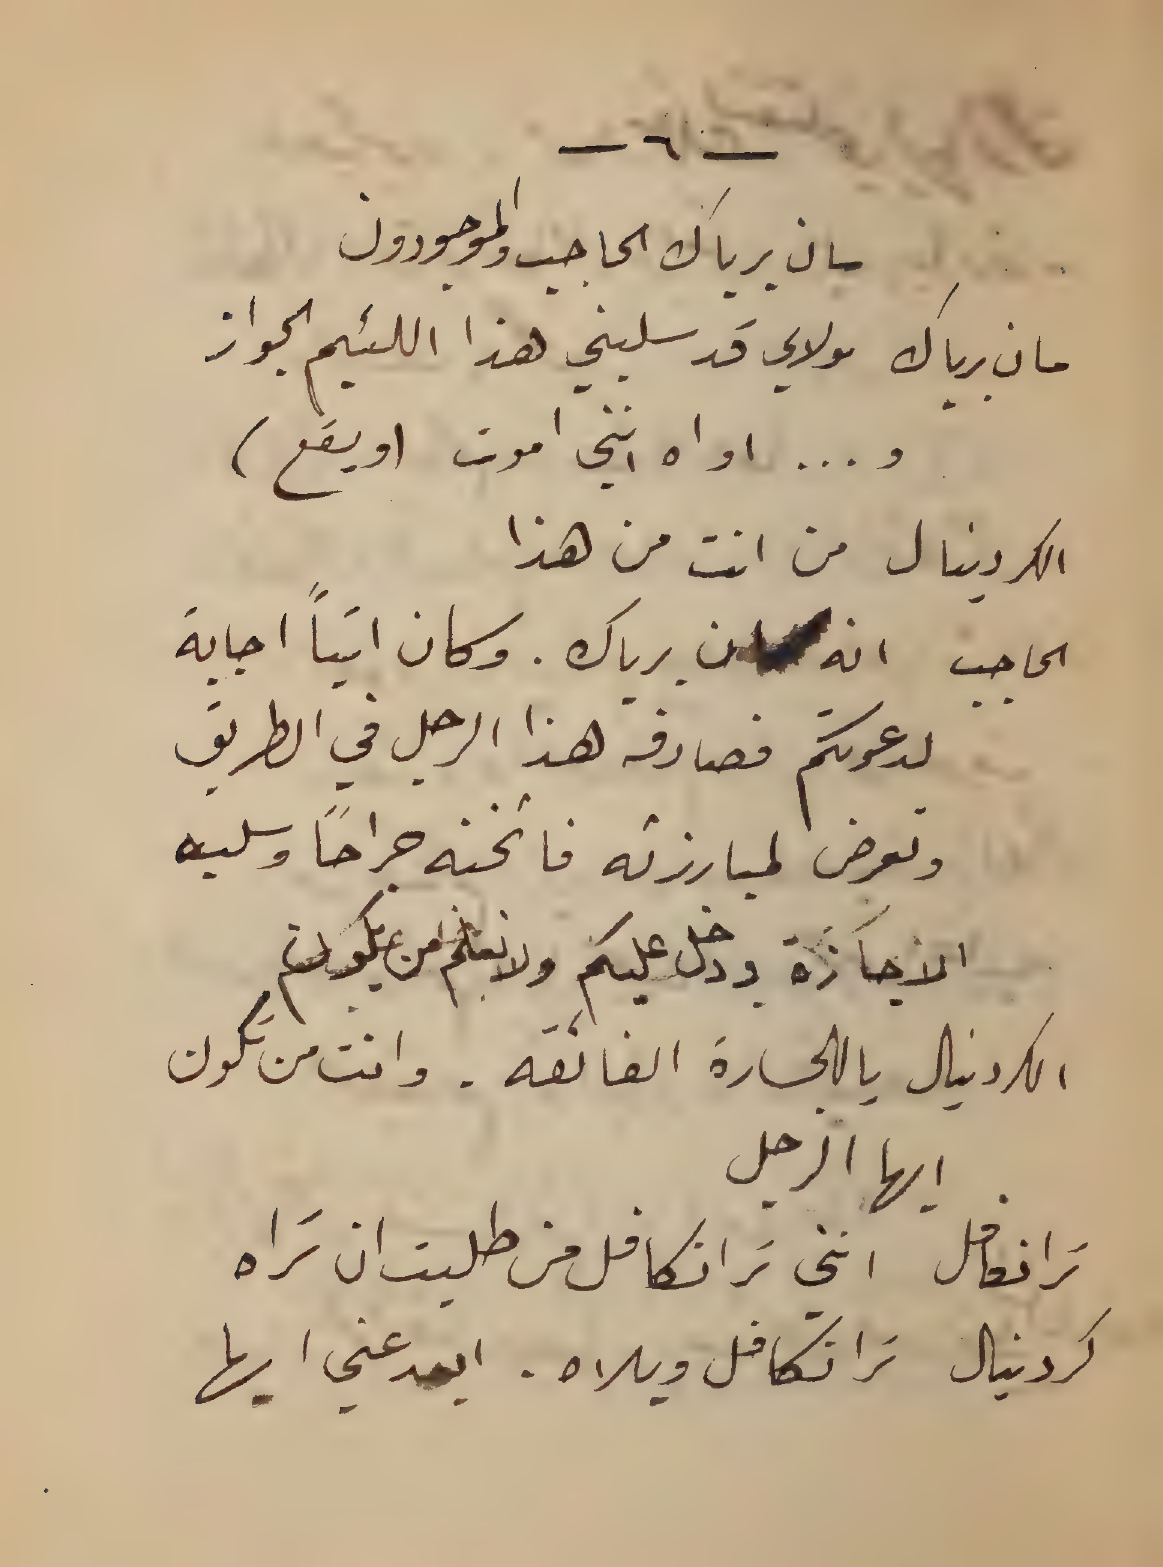 — ٦ —
سان برياك الحاجب والموجودون
سان برياك مولاي قد سلبني هذا اللئيم الجواز
و... اواه انني اموت (ويقع)
الكردينال من انت من هذا
الحاجب انه سان برياك. وكان اتياً اجابة
لدعوتكم فصادفه هذا الرجل في الطريق
وتعرض لمبارزته فاثخنه جراحًا وسلبه
الاجازة ودخل عليكم ولا نعلم من يكون
الكردينال ياللجسارة الفائقه. وانت من تكون
ايها الرجل
ترانكافل انني ترانكافل من طلبت ان تراه
كردينال ترانكافل ويلاه. ابعد عني ايها